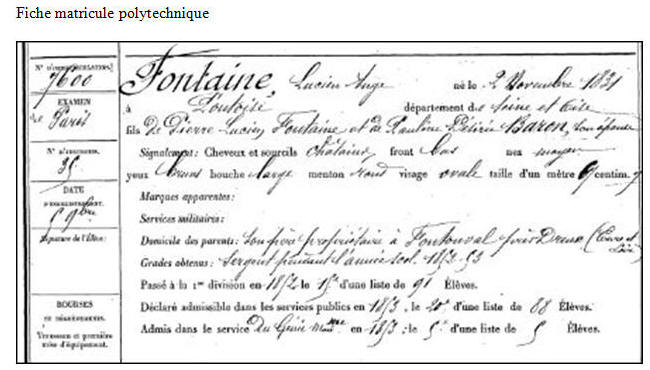 Fiche matricule polytechnique
N° D'IMMATRICULATION
7600
EXAMEN
de Paris
N° D'EXAMEN
35.
DATE
D'ENREGISTREMENT.
5 9bre
Signature de l'Élève:
BOURSES
ET DÉGRÈVEMENTS.
Trousseau et première
mise d'équipement.
Fontaine, Lucien Ange né le 2 Novembre 1831
à Pontoise département de Seine et Oise
fils de Pierre Lucien Fontaine et de Pauline Désirée Baron, son épouse
Signalement: Cheveux et sourcils châtains front bas nez moyen
yeux bruns bouche large menton rond visage ovale taille d'un mètre centim.
Marques apparentes:
Services militaires:
Domicile des parents: Son père propriétaire à Fontonval près Dreux (Eure et Loir)
Grades obtenus: Sergent pendant l'année scol. 1852-53
Passé à la 1re division en 1852 le 15e d'une liste de 91 Élèves.
Déclaré admissible dans les services publics en 1853, le 20e d'une liste de 88 Élèves.
Admis dans le service du Génie Mme en 1853; le 5e d'une liste de 5 Élèves.